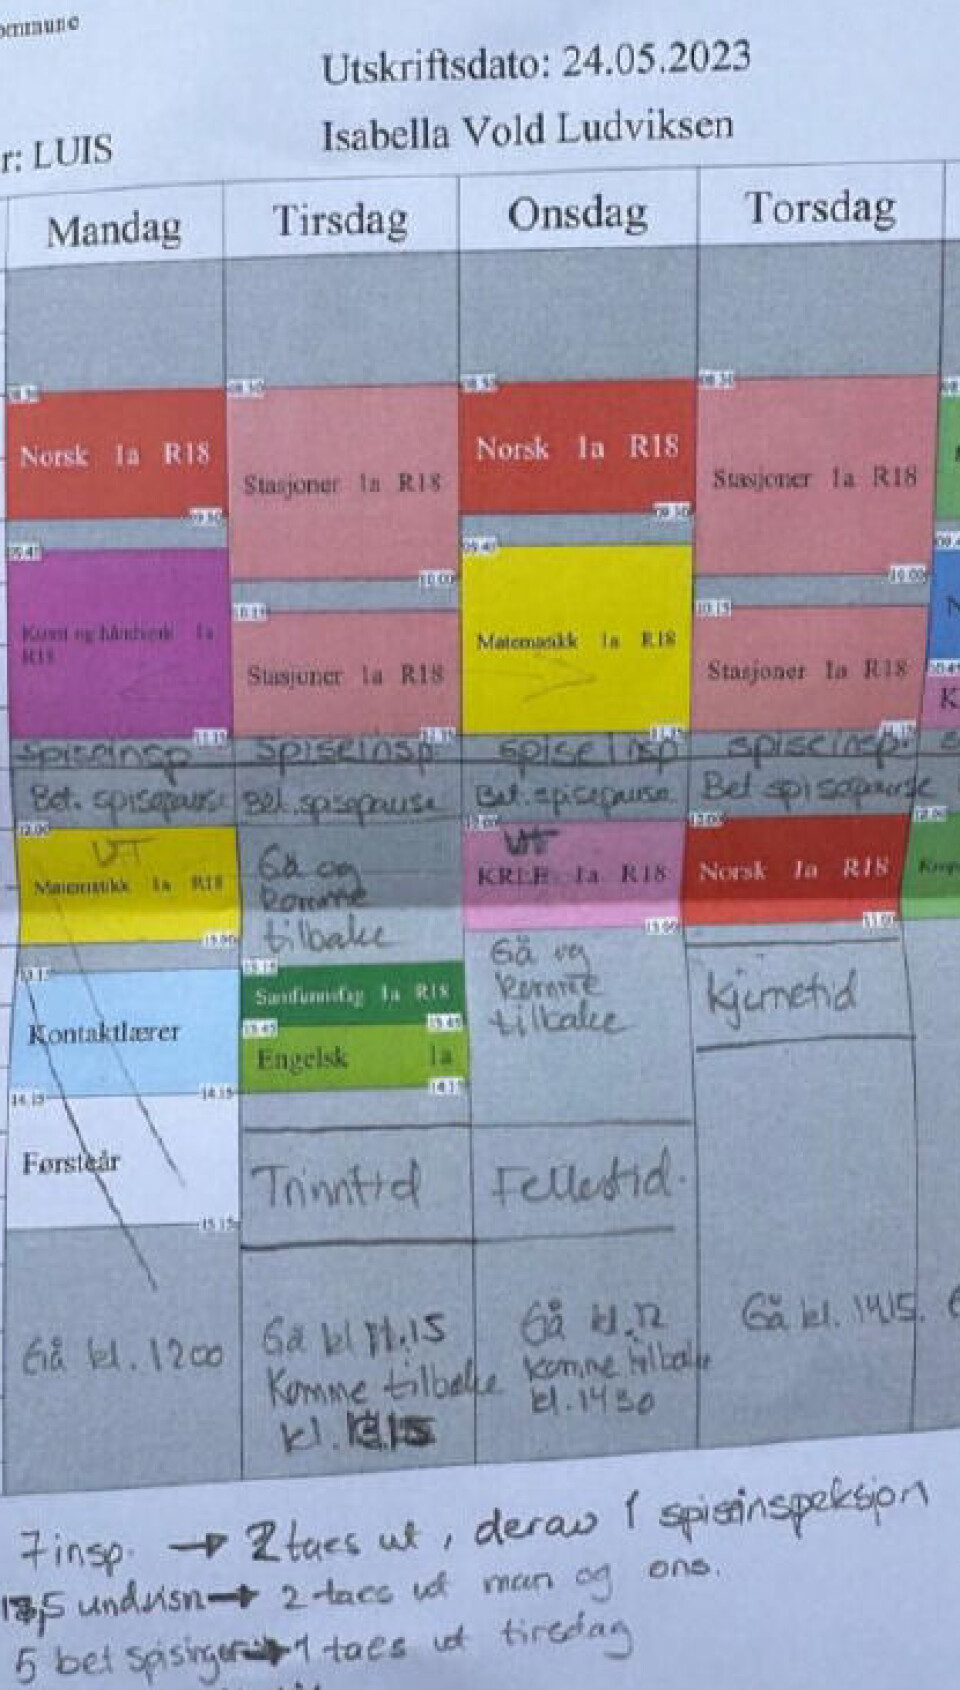 ommune
Utskriftsdato: 24.05.2023
r: LUIS
Isabella Vold Ludviksen
Mandag Tirsdag Onsdag Torsdag
08.50 08.50
Norsk 1a R18
Stasjoner 1a R18
Norsk 1a R18
Stasjoner 1a R18
09.50 09.50
09.45
10.00 10.00
10.15 10.15
Kunst og håndverk 1a
R18
Stasjoner 1a R18
Matematikk 1a R18
Stasjoner 1a R18
10.45
K
11.15 11.15 11.15 11.15
spiseinsp spiseinsp spiseinsp spiseinsp.
Bet. spisepause Bet. spisepause Bet. spisepause Bet spisepause
12.00 12.00 12.00 12.00
UT
Matematikk 1a R18
Gå og
komme
tilbake
UT
KRLE 1a R18
Norsk 1a R18
13.00 13.00 13.00
13.15 13.15
Kontaktlærer
Samfunnsfag 1a R18
13.45 13.45
Engelsk 1a
14.15
Gå og
komme
tilbake
Kjernetid
14.15 14.15
Førsteår
15.15
Trinntid
Fellestid.
Gå kl. 1200
Gå kl 11.15
Komme tilbake
kl.
Gå kl. 12
Komme tilbake
kl. 1430
Gå kl. 1415.
7 insp. → 2 taes ut, derav 1 spiseinspeksjon
5 undvisn → 2 taes ut man og ons.
5 bet spisinger → 1 taes ut tirsdag